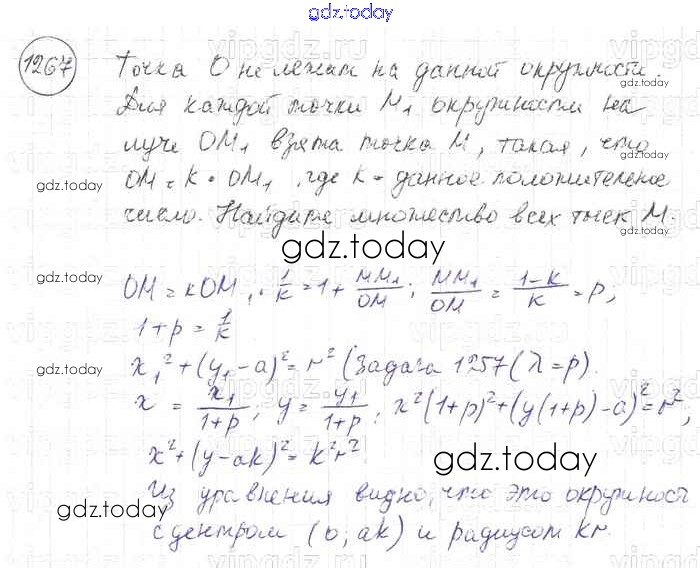 gdz.today
1267 Точка О не лежит на данной окружности.
Для каждой точки M₁ окружности на
луче OM₁ взята точка M, такая, что
gdz.today
OM = k · OM₁, где k - данное положительное
число. Найдите множество всех точек M.
gdz.today
gdz.today
gdz.today
OM = kOM₁. 1/k = 1 + MM₁/OM; MM₁/OM = (1-k)/k = p,
1+p = 1/k
x₁² + (y₁-a)² = r² (Задача 1257 (λ=p).
gdz.today
x = x₁/(1+p); y = y₁/(1+p); x²(1+p)² + (y(1+p)-a)² = r²,
x² + (y-ak)² = k²r².
gdz.today
Из уравнения видно, что это окружность
gdz.today
с центром (0; ak) и радиусом kr.
gdz.today
gdz.today